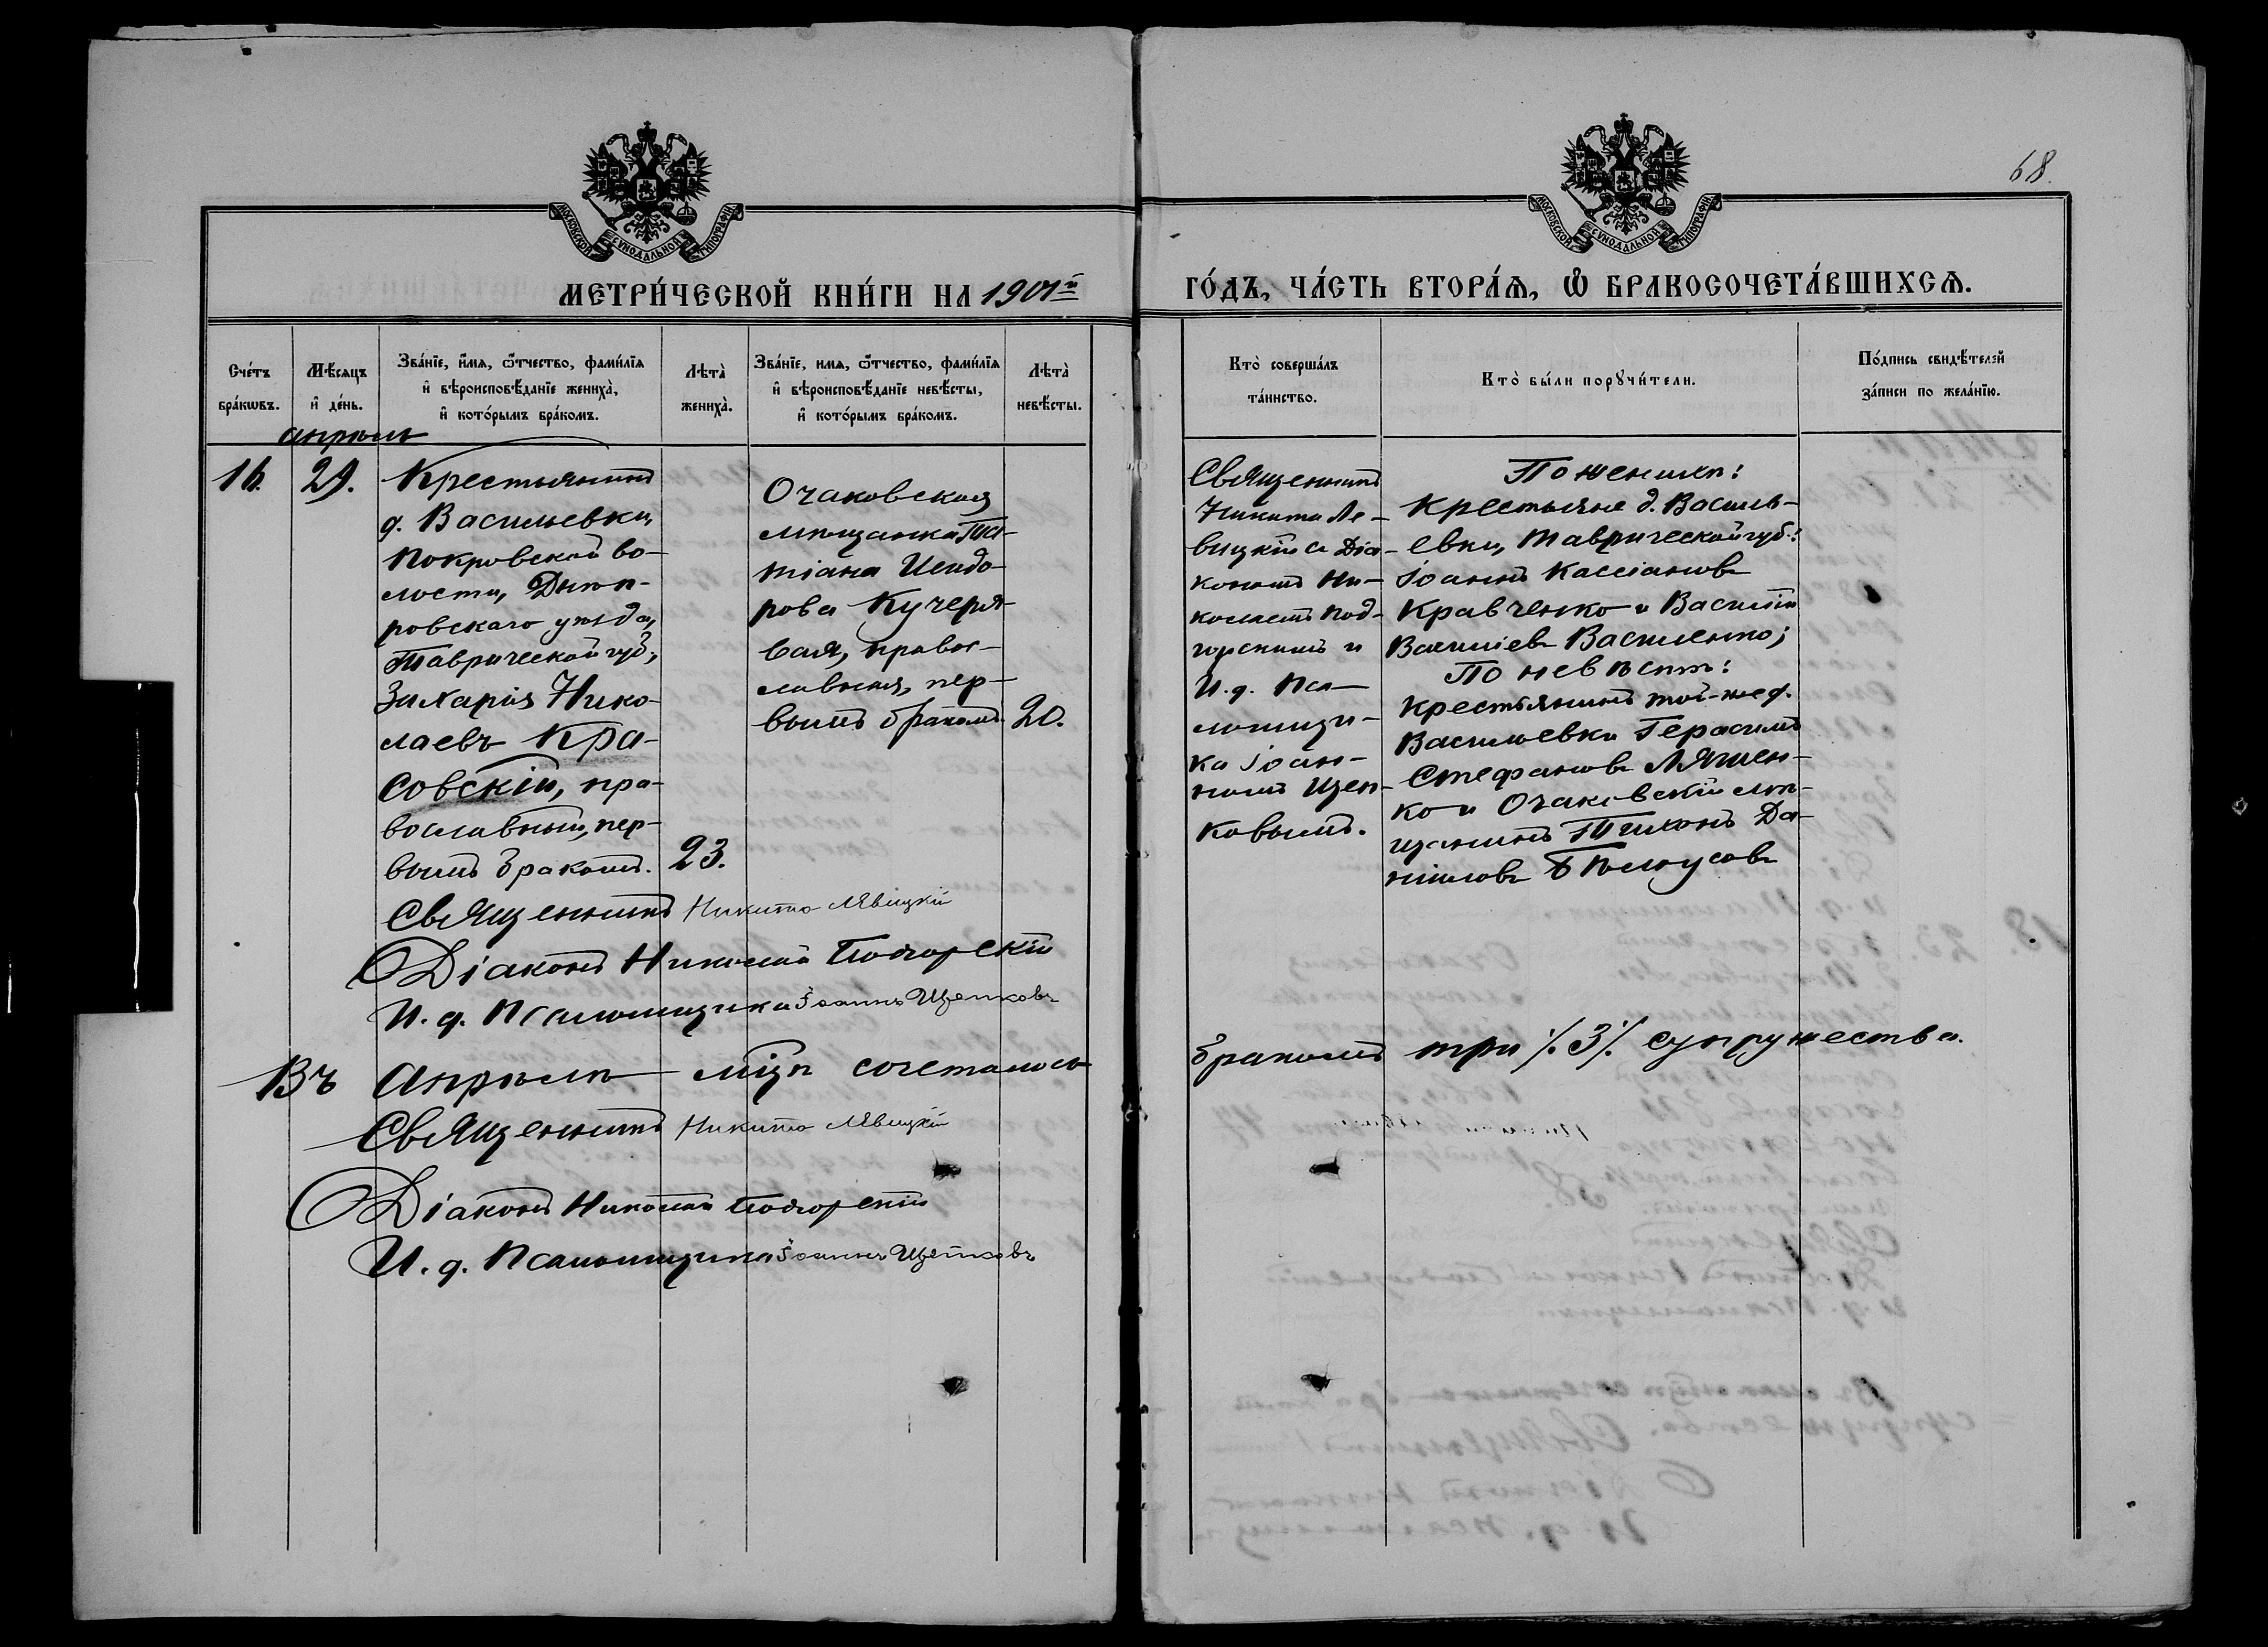 68.
МОСКОВСКОЙ СѴНОДАЛЬНОЙ ТИПОГРАФІИ
МОСКОВСКОЙ СѴНОДАЛЬНОЙ ТИПОГРАФІИ
МЕТРИ́ЧЕСКОЙ КНИ́ГИ НА 1901й
ГО́ДЪ, ЧА́СТЬ ВТОРА́Ѧ, Ѡ҆ БРАКОСОЧЕТА́ВШИХСѦ.
Сче́тъ
бра́кѡвъ.
Мѣ́сяцъ
и҆ де́нь.
Зва́нїе, и҆́мя, ѻ҆́тчество, фами́лїя
и҆ вѣроисповѣ́данїе жениха̀,
и҆ кото́рымъ бра́комъ.
Лѣта̀
жениха̀.
Зва́нїе, имя, ѻ҆́тчество, фами́лїя
и҆ вѣроисповѣ́данїе невѣ́сты,
и҆ кото́рымъ бра́комъ.
Лѣта̀
невѣ́сты.
Кто̀ соверша́лъ
та́инство.
Кто̀ бы́ли порꙋчи́тели.
По́дпись свидѣ́телей
за́писи по жела́нїю.
апрѣль
16.
29.
Крестьянинъ
д. Васильевки,
Покровской во-
лости, Днѣп-
ровскаго уѣзда,
Таврической губ.,
Захарія Нико-
лаевъ Кра-
совскій, пра-
вославный, пер-
вымъ бракомъ.
23.
Очаковская
мѣщанка Та-
тіана Исидо-
рова Кучеря-
вая, правос-
лавная, пер-
вымъ бракомъ
20.
Священникъ
Никита Ле-
вицкій съ Діа-
кономъ Ни-
колаемъ Под-
горскимъ и
И. д. Пса-
ломщи-
ка Іоан-
номъ Щеп-
ковымъ.
По женихѣ:
Крестьяне д. Василь-
евки, Таврической губ.:
Іоаннъ Кассіановъ
Кравченко и Василій
Василіевъ Василенко;
По невѣстѣ:
Крестьянинъ той-же д.
Васильевки Герасимъ
Стефановъ Ляшен-
ко и Очаковскій мѣ-
щанинъ Тихонъ Да-
ніиловъ Бѣлоусовъ
Священникъ Никита Лѣвицкій
Діаконъ Николай Подгорскій
И. д. Псаломщика Іоаннъ Щепковъ
Въ Апрѣлѣ мцѣ сочеталось
бракомъ три /.3/. супружества.
Священникъ Никита Лѣвицкій
Діаконъ Николай Подгорскій
И. д. Псаломщика Іоаннъ Щепковъ